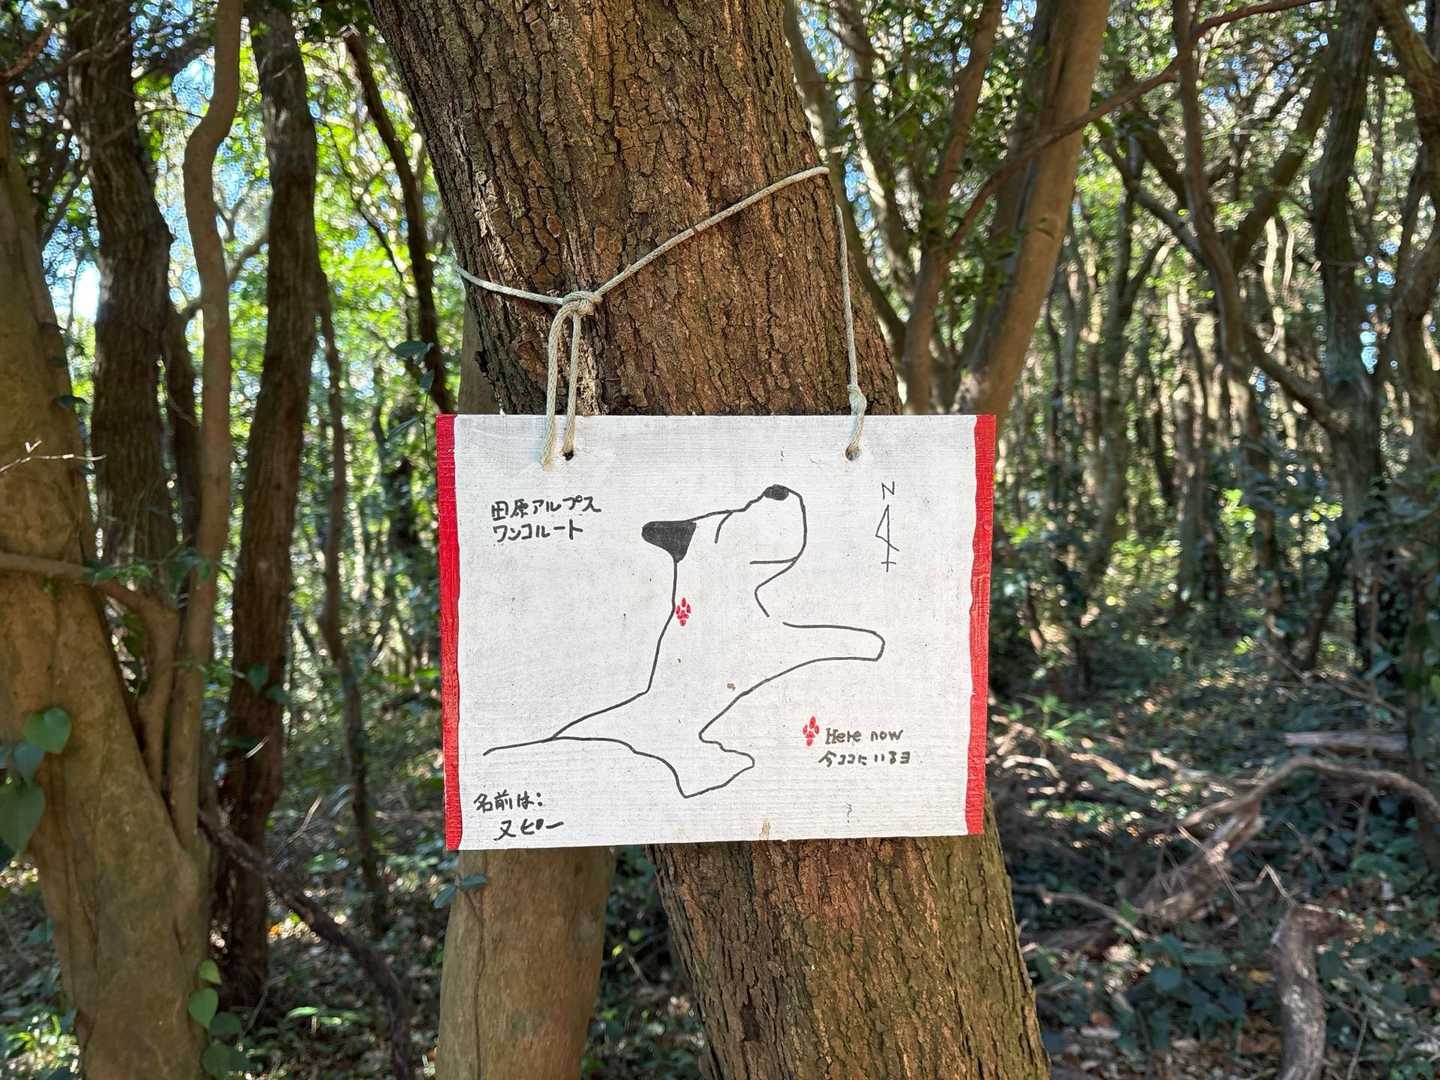 田原アルプス
ワンコルート
N
Here now
今ココにいるヨ
名前は:
ヌピー